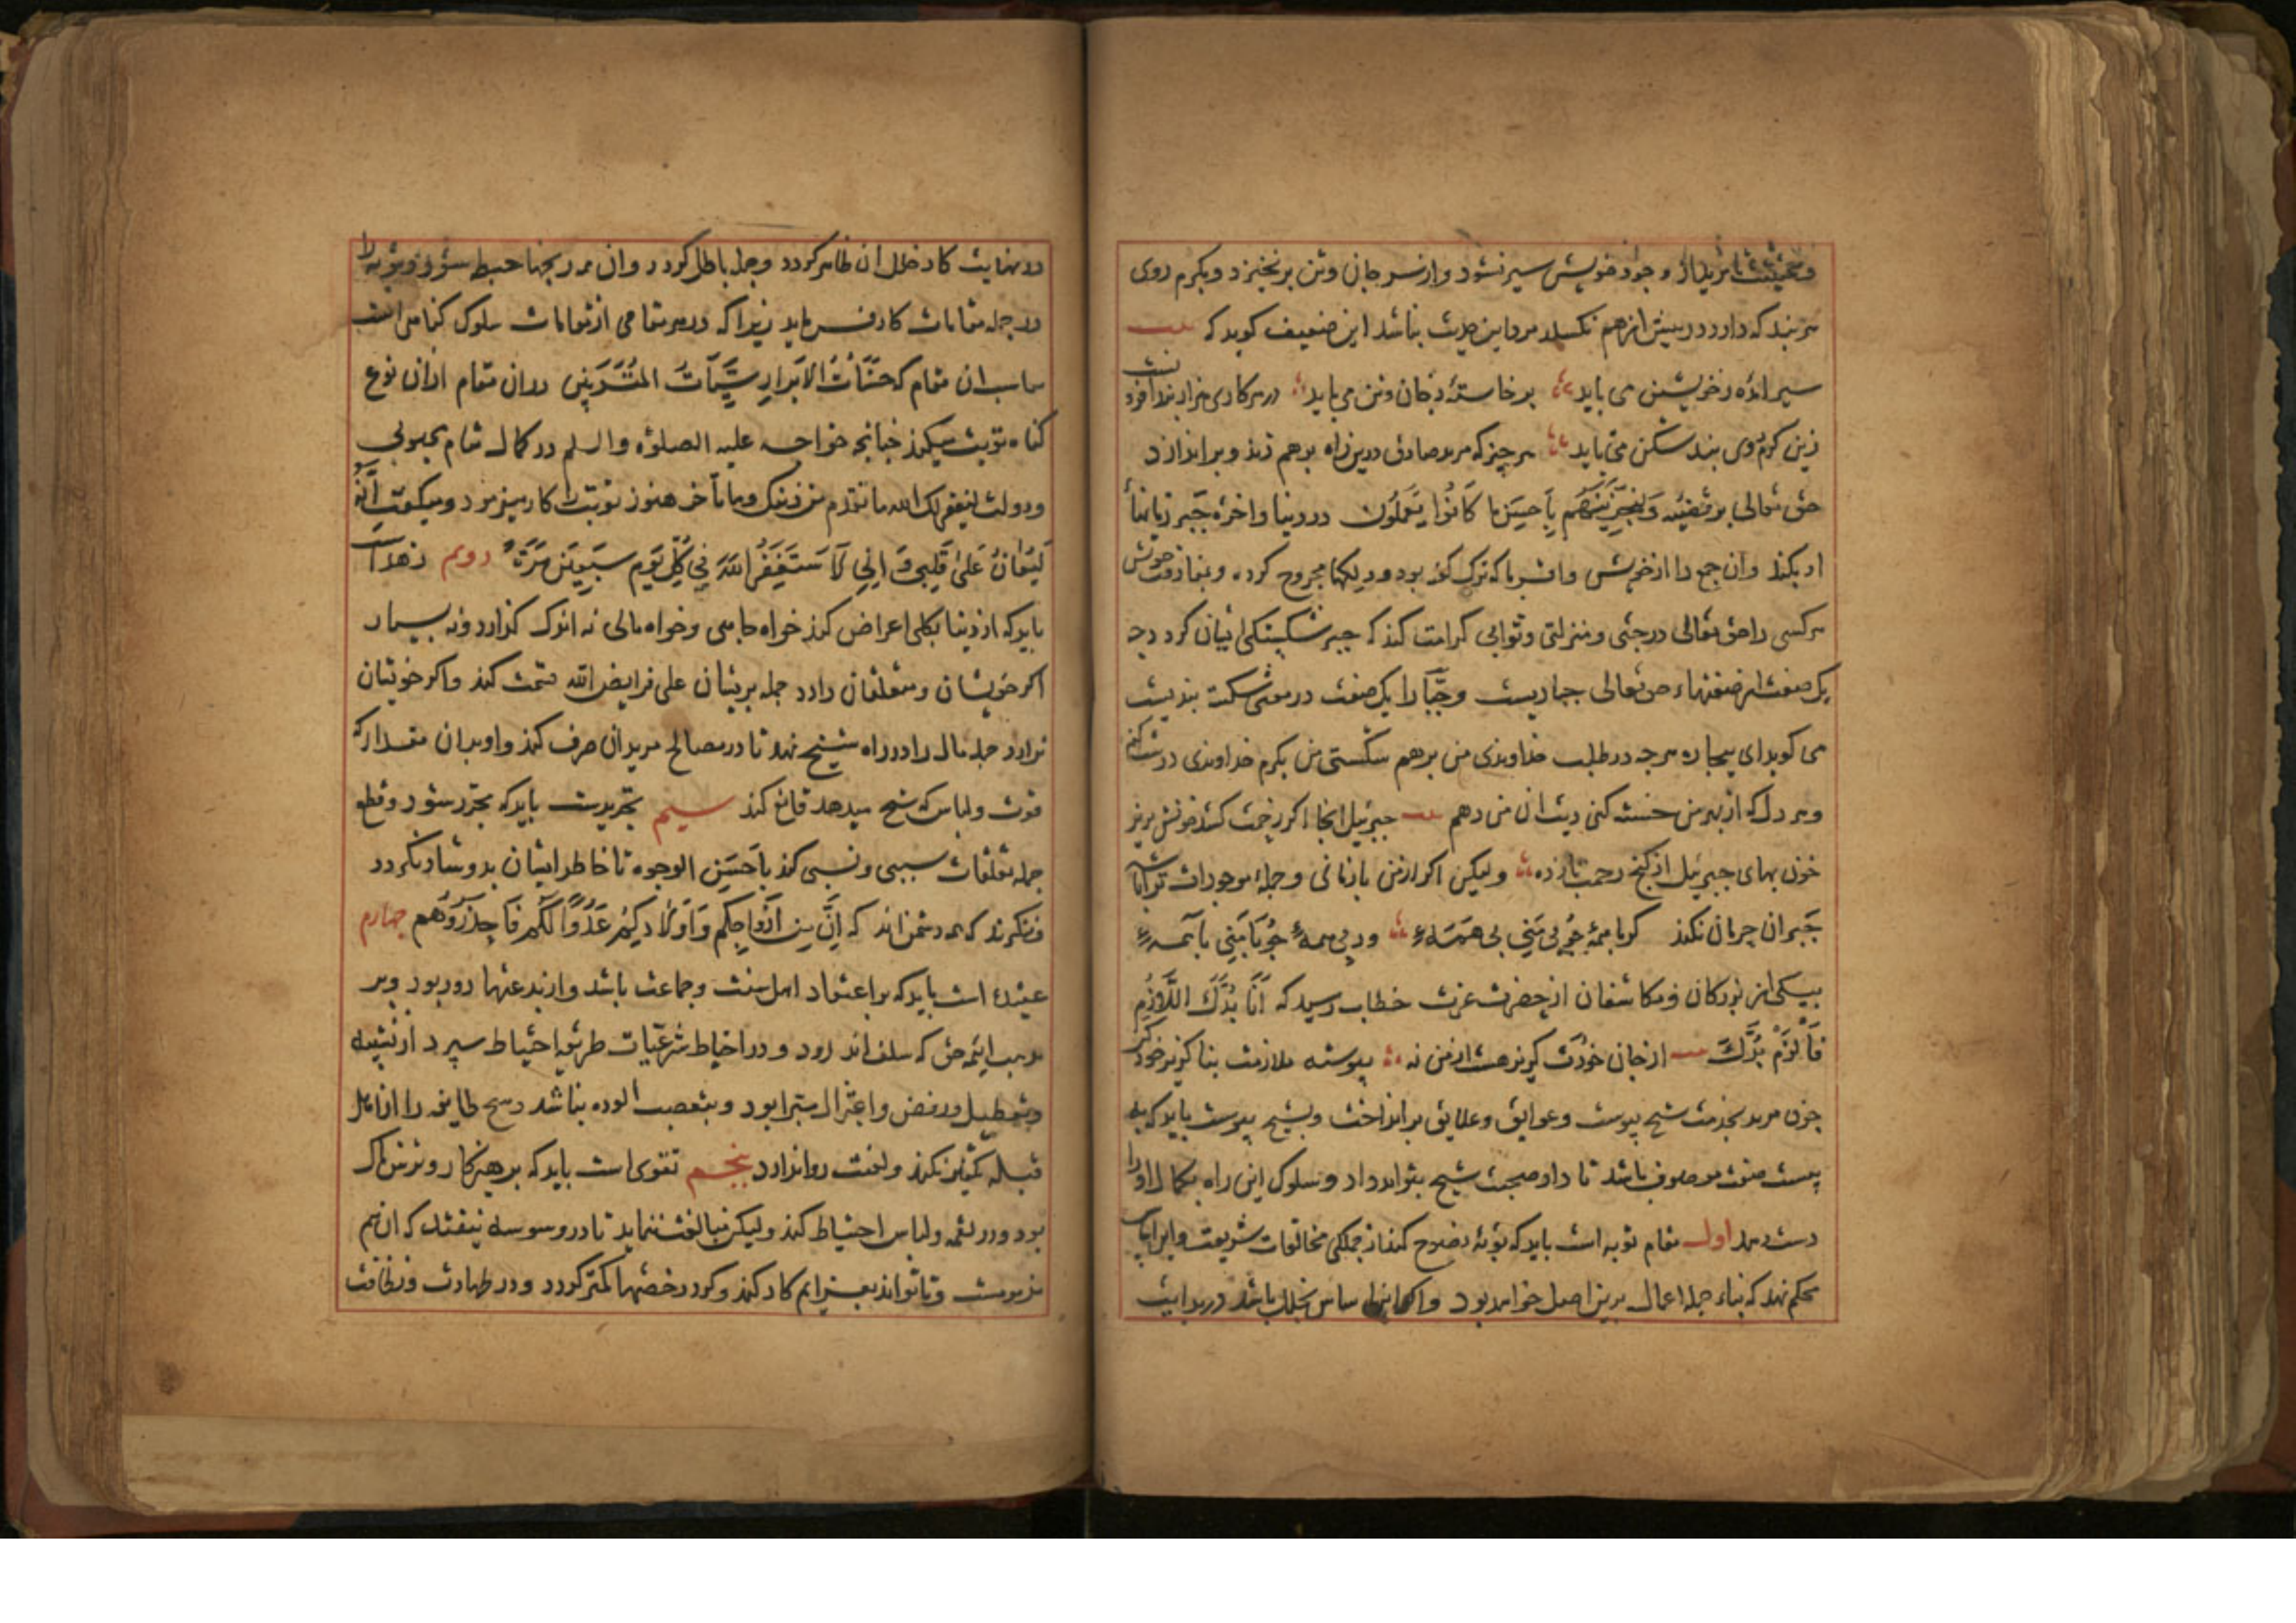 و بحقیقت تا مرید از وجود خویش سیر نشود و از سر جان و تن برنخیزد و بکرم روی
هر بند که دارد در پیش از هم نکسلد مرد این حدیث نباشد این ضعیف کوید که بیت
سیر امده ز خویشتن می باید برخاسته ز جان و تن می باید در هر کامی هزار بند افزونست
زین کرم روی بند شکن می باید هر چیز که مرید صادق درین راه برهم زند و براندازد
حق تعالی بر قضیه وَلَنَجْزِیَنَّهُم بِأَحْسَنِ مَا کَانُوا یَعْمَلُون در دنیا و اخره جبر زیانها
او بکند و ان جمع را از خویش و اقربا که ترک کفته بود و دلها مجروح کرده و بمفارقت خویش
هر کسی را حق تعالی درجتی و منزلتی و ثوابی کرامت کند که جبر شکستکی ایشان کردد چه
یک صفت از صفتهاء حق تعالی جباریست و جبّار را یک صفت در معنی شکسته بندیست
می کوید ای بیچاره هر چه در طلب خداوندی من برهم شکستی من بکرم خداوندی درست کنم
و هر دل که از بهر من خسته کنی دیت ان من دهم بیت جبرئیل اینجا اکر زحمت کند خونش بریز
خون بهای جبرئیل از کنج رحمت بازده ولیکن اکر از من بازمانی و جمله موجودات ترا باشد
جبران حرمان نکند کر با همهٔ چو بی منی بی همهٔ ور بی همهٔ چو با منی با همهٔ
بیکی از بزرکان و مکاشفان از حضرت عزت خطاب رسید که اَنَا بُدُّکَ اللَّازِمُ
فَالْزَمْ بُدَّکَ بیت از جان خودت کزیر هست از من نه پیوسته ملازمت بنا کزیر خود کیر
چون مرید بخدمت شیخ پیوست و عوایق و علایق برانداخت و بشیخ پیوست باید که به
بیست صفت موصوف باشد تا داد صحبت شیخ بتواند داد و سلوک این راه بکمال او را
دست دهد اول مقام توبه است باید که توبهٔ نصوح کند از جملکی مخالفات شریعت و این اساس
محکم نهد که بناء جمله اعمال برین اصل خواهد بود و اکر این اساس بخلل باشد در بدایت
در نهایت کار خلل ان ظاهر کردد و جمله باطل کردد و ان همه رنجها حبط شود و توبه را
در جمله مقامات کار فرماید زیرا که در هر مقامی از مقامات سلوک کناهی است
مناسب ان مقام که حَسَنَاتُ الاَبْرَارِ سَیِّئَاتُ المُقَرَّبِینَ در ان مقام از ان نوع
کناه توبت میکند چنانچه خواجه علیه الصلوة والسلم در کمال مقام محبوبی
و دولت لیغفر لک الله ما تقدم من ذنبک وما تأخر هنوز توبت را کار میفرمود و میکفت اِنَّهُ
لَیُغَانُ عَلَی قَلْبِی وَ اِنِّی لَاَسْتَغْفِرُ اللهَ فِی کُلِّ یَوْمٍ سَبْعِینَ مَرَّةً دویم زهد است
باید که از دنیا بکلی اعراض کند خواه جاهی و خواه مالی نه اندک کذارد و نه بسیار
اکر خویشان و متعلقان دارد جمله بریشان علی فرایض الله قسمت کند و اکر خویشان
ندارد جمله مال را در راه شیخ نهد تا در مصالح مریدان صرف کند و او بدان مقدار که
قوت و لباس که شیخ میدهد قانع کند سیم تجریدست باید که مجرد شود و قطع
جمله تعلقات سببی و نسبی کند باَحْسَنِ الوجوه تا خاطر ایشان بدو شاد نکردد
و ننکرند که همه دشمن اند که اِنَّ مِنْ اَزْوَاجِکُمْ وَاَوْلَادِکُمْ عَدُوًّا لَکُمْ فَاحْذَرُوهُمْ چهارم
عقیده است باید که بر اعتقاد اهل سنت و جماعت باشد و از بدعتها دور بود و بر
مذهب ایمه حق که سلف اند رود و در احتیاط شرعیات طریق احتیاط سپرد از تشبیه
و تعطیل و رفض و اعتزال مبترا بود و بتعصب الوده نباشد و هیچ طایفه را از اهل
قبله تکفیر نکند و لعنت روا ندارد پنجم تقوی است باید که برهیزکار و ترسناک
بود و در لقمه و لباس احتیاط کند و لیکن مبالغت ننماید تا در وسوسه نیفتد که ان هم
مذمومست و تا تواند بعزایم کار کند و کرد رخصتها کمتر کردد و در طهارت و نظافت